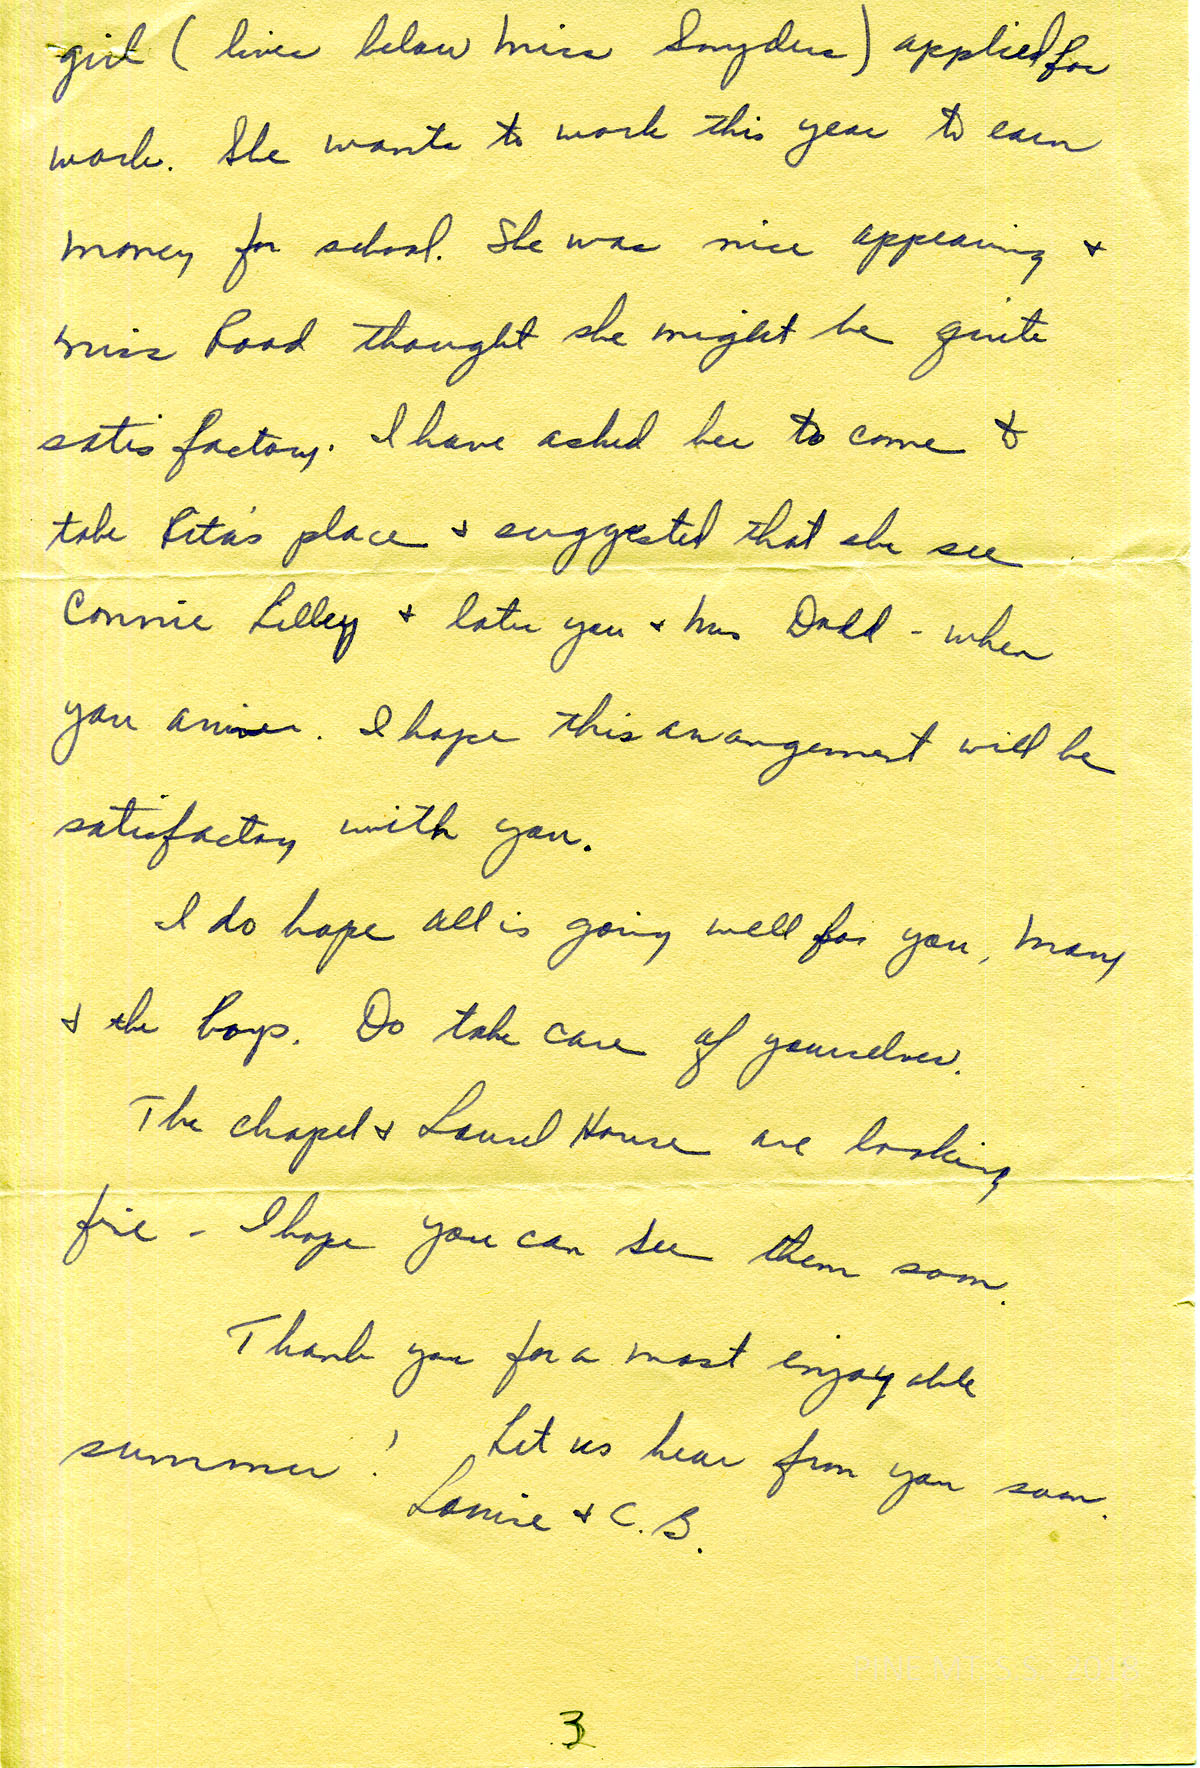 girl (lives below Miss Snyders) applied for
work. She wants to work this year to earn
money for school. She was nice appearing &
Miss Rood thought she might be quite
satisfactory. I have asked her to come to
take Rita's place & suggested that she see
Connie Lilley & later you & Mrs Dodd - when
you arrive. I hope this arrangement will be
satisfactory with you.
I do hope all is going well for you, Mary
& the boys. Do take care of yourselves.
The chapel & Laurel House are looking
fine - I hope you can see them soon.
Thank you for a most enjoyable
summer! Let us hear from you soon.
Louise & C. B.
PINE MT S.S. 2018
3